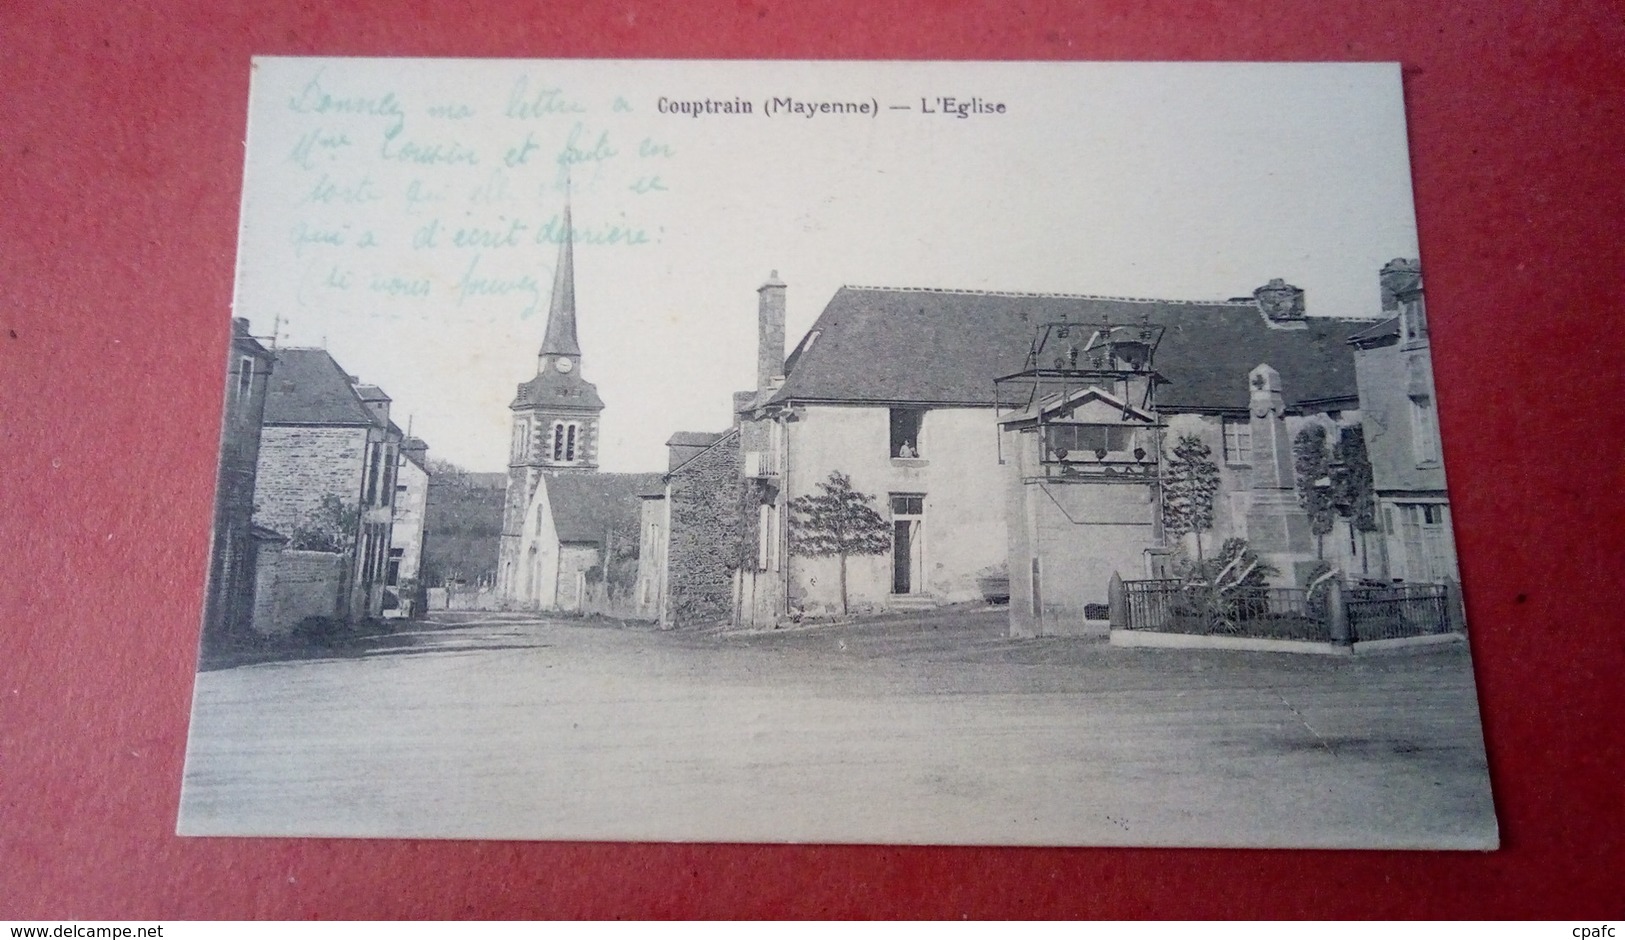 Donnez ma lettre a
Couptrain (Mayenne) — L'Eglise
Mme Cousin et faite en
sorte qu'elle ce
qui a d'ecrit derriere :
(si vous pouvez)
www.delcampe.net
cpafc